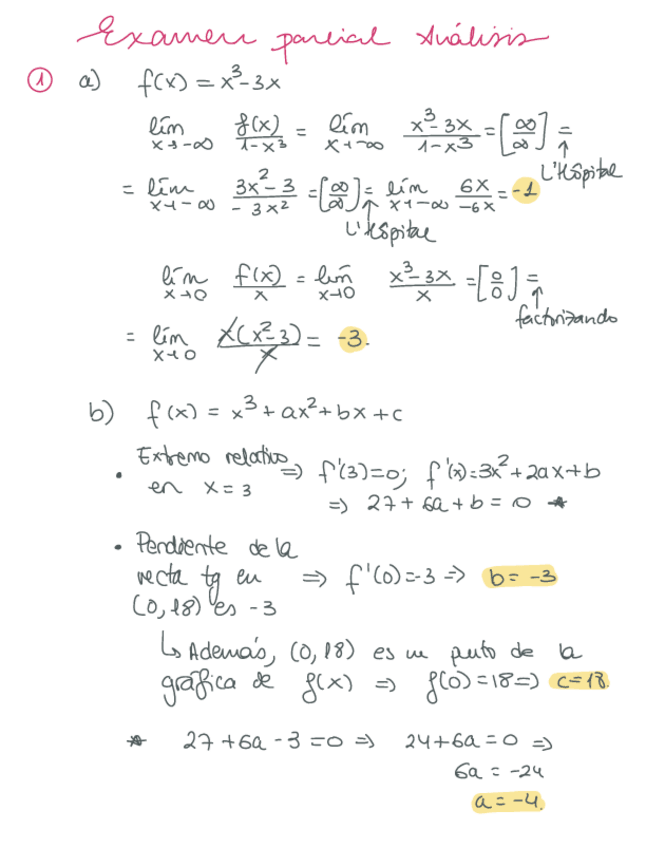 Examen parcial Análisis
① a) f(x) = x³-3x
lím x→-∞ f(x)/(1-x³) = lím x→-∞ (x³-3x)/(1-x³) = [∞/∞] =
L'Hôpital
= lím x→-∞ (3x²-3)/(-3x²) = [∞/∞] = lím x→-∞ 6x/(-6x) = -1
L'Hôpital
lím x→0 f(x)/x = lím x→0 (x³-3x)/x = [0/0] =
factorizando
= lím x→0 x(x²-3)/x = -3.
b) f(x) = x³+ax²+bx+c
• Extremo relativo en x=3 ⇒ f'(3)=0; f'(x)=3x²+2ax+b
⇒ 27+6a+b=0 *
• Pendiente de la
recta tg en ⇒ f'(0)=-3 ⇒ b=-3
(0,18) es -3
↳ Además, (0,18) es un punto de la
gráfica de f(x) ⇒ f(0)=18 ⇒ c=18.
* 27+6a-3=0 ⇒ 24+6a=0 ⇒
6a = -24
a = -4.